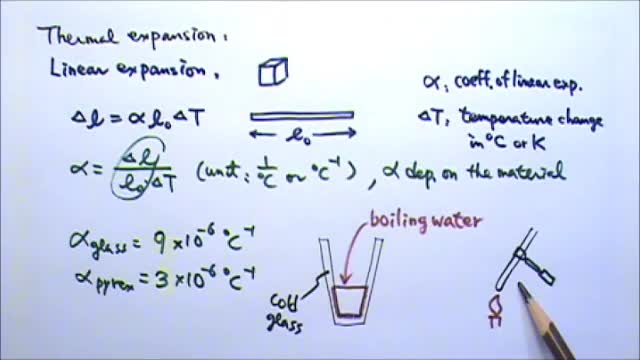 Thermal expansion:
Linear expansion.
α: coeff. of linear exp.
Δl = α l₀ ΔT
l₀
ΔT: temperature change
in °C or K
α = Δl / l₀·ΔT (unit: 1/°C or °C⁻¹), α dep. on the material
boiling water
α glass = 9 × 10⁻⁶ °C⁻¹
α pyrex = 3 × 10⁻⁶ °C⁻¹
cold
glass